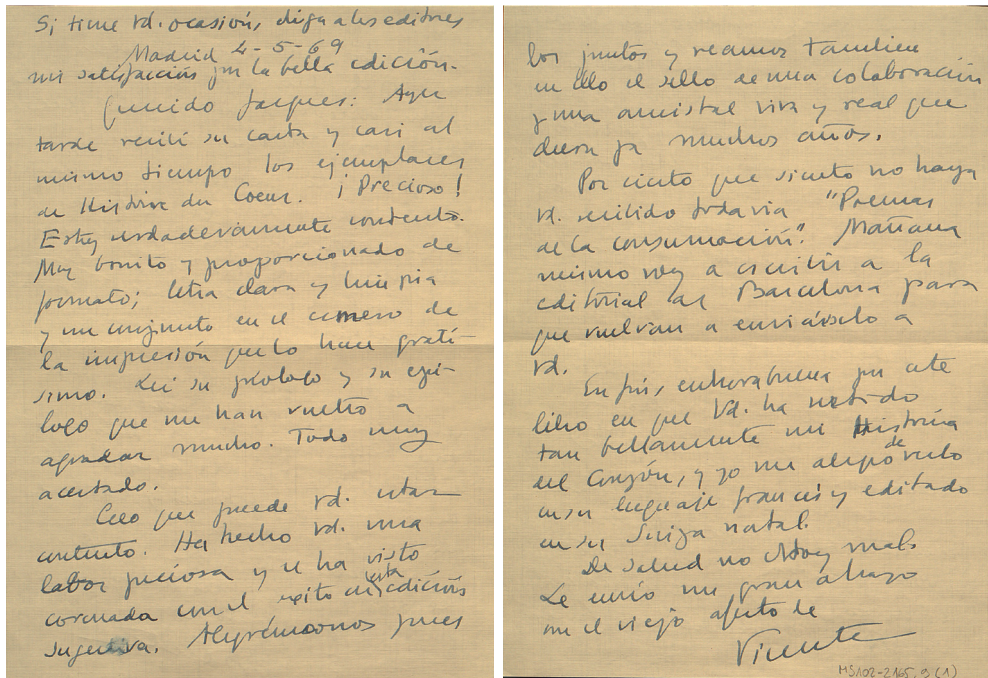 Si tiene Vd. ocasión, diga a los editores
Madrid 4-5-69
mi satisfacción por la bella edición.
Querido Jacques: Ayer
tarde recibí su carta y casi al
mismo tiempo los ejemplares
de Histoire du Coeur. ¡Precioso!
Estoy verdaderamente contento.
Muy bonito y proporcionado de
formato; letra clara y limpia
y un conjunto en el esmero de
la impresión que lo hace gratí-
simo. Leí su prólogo y su epí-
logo que me han vuelto a
agradar mucho. Todo muy
acertado.
Creo que puede Vd. estar
contento. Ha hecho Vd. una
labor preciosa y se ha visto
coronada con el éxito en esta edición
sugestiva. Alegrémonos pues
los juntos y veamos también
en ello el sello de una colaboración
y una amistad viva y real que
duran ya muchos años.
Por cierto que siento no haya
Vd. recibido todavía "Poemas
de la consumación". Mañana
mismo voy a escribir a la
editorial de Barcelona para
que vuelvan a enviárselo a
Vd.
En fin, enhorabuena por este
libro en que Vd. ha vertido
tan bellamente mi Historia
del Corazón, y yo me alegro de verlo
en su lenguaje francés y editado
en su Suiza natal.
De salud no estoy mal.
Le envío un gran abrazo
con el viejo afecto de
Vicente
MS102-2165.9(1)